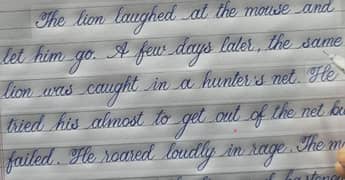 The lion laughed at the mouse and
let him go. A few days later, the same
lion was caught in a hunter's net. He
tried his almost to get out of the net
failed. He roared loudly in rage. The